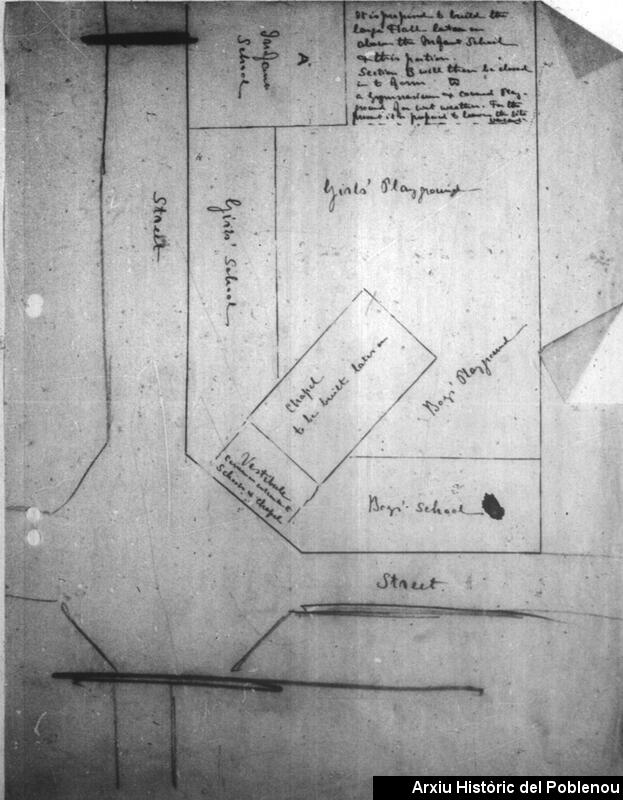 It is proposed to build the
large Hall later on
above the Infant School
& this portion.
Section B will then be closed
in to form
a Gymnasium & covered Play-
ground for wet weather. For the
present it is proposed to leave the site
vacant.
A
Infant
School
Girls' Playground
Street
Girls' School
Chapel
to be built later on
Boys' Playground
Vestibule
common entrance to
Schools & Chapel
Boys' School
Street
Arxiu Històric del Poblenou